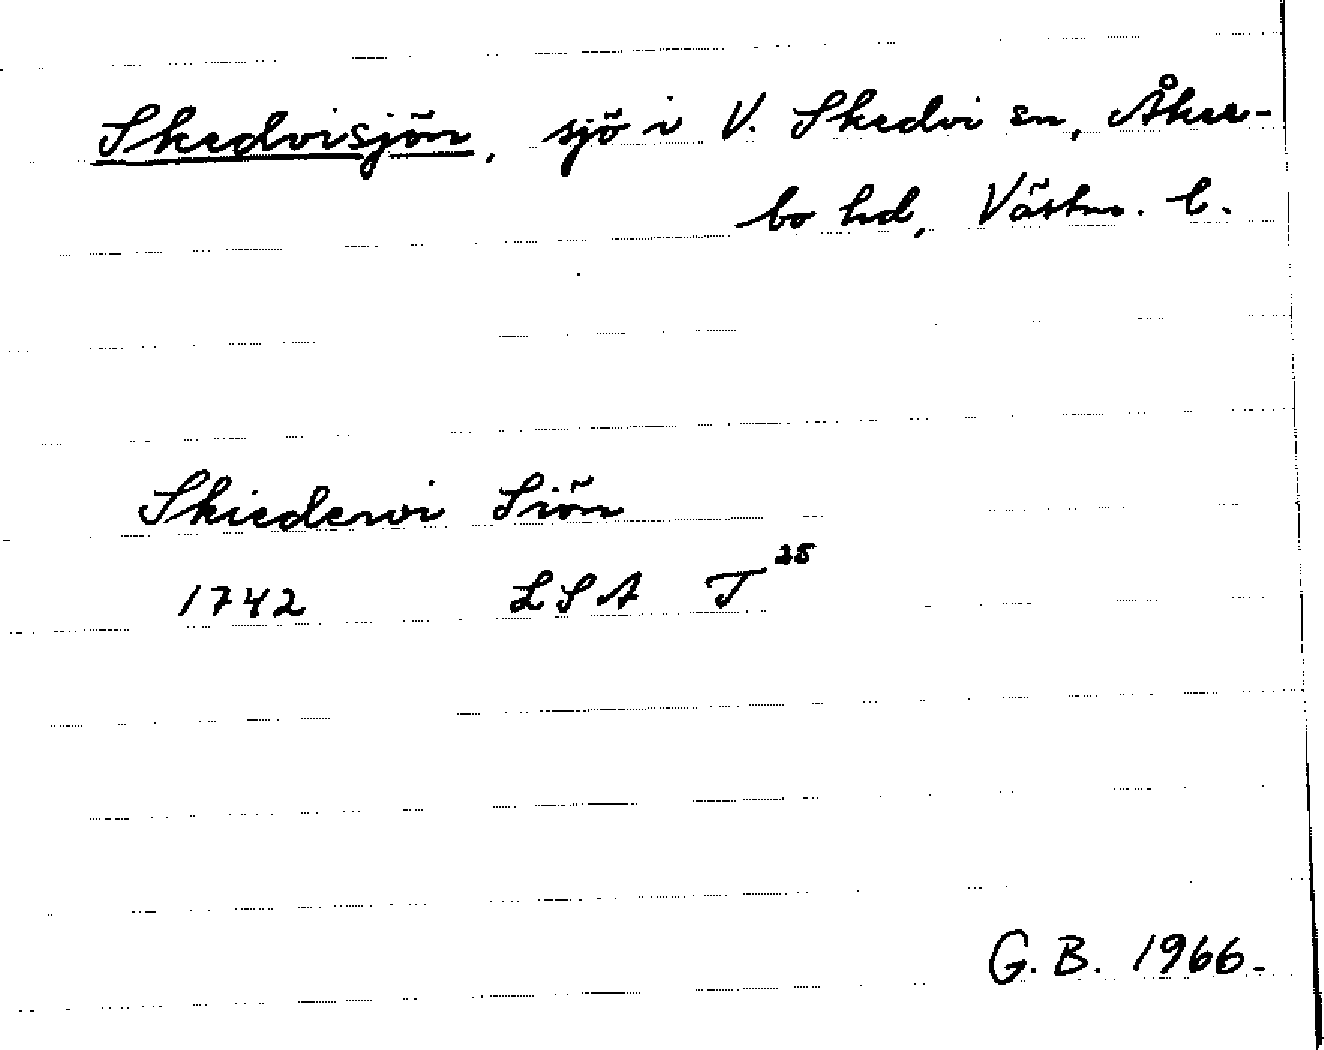 Skedvisjön, sjö i V. Skedvi sn, Åker-
bo hd, Västm. l.
Skiedewi Siön
1742 LSA T 25
G. B. 1966.